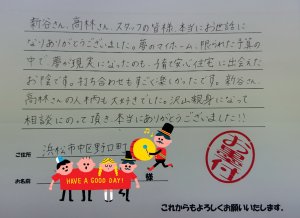 新谷さん、高林さん、スタッフの皆様、本当にお世話に
なりありがとうございました。夢のマイホーム、限られた予算の
中で夢が現実になったのも、子育て安心住宅に出会えた
お陰です。打ち合わせもすごく楽しかったです。新谷さん、
高林さんの人柄も大好きでした。沢山親身になって
相談にのって頂き、本当にありがとうございました!!
ご住所 浜松市中区野口町
お名前 様
HAVE A GOOD DAY!
お客様
これからもよろしくお願いいたします。